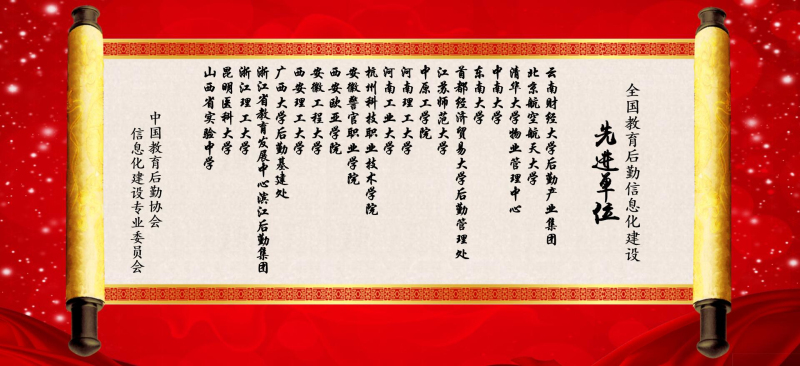 全国教育后勤信息化建设
先进单位
云南财经大学后勤产业集团
北京航空航天大学
清华大学物业管理中心
中南大学
东南大学
首都经济贸易大学后勤管理处
江苏师范大学
中原工学院
河南理工大学
河南工业大学
杭州科技职业技术学院
安徽警官职业学院
西安欧亚学院
安徽工程大学
西安理工大学
广西大学后勤基建处
浙江省教育发展中心滨江后勤集团
浙江理工大学
昆明医科大学
山西省实验中学
中国教育后勤协会
信息化建设专业委员会